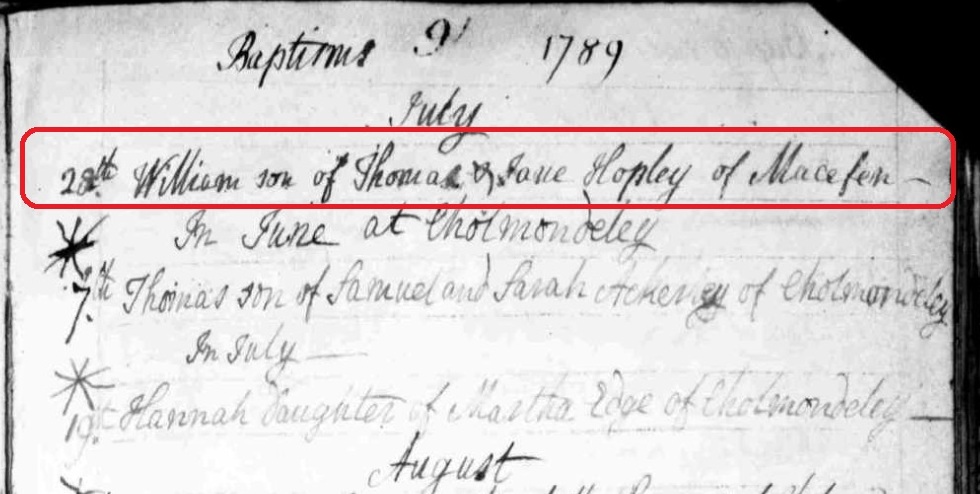 Baptisms 9 1789
July
28th William son of Thomas & Jane Hopley of Macefen
In June at Cholmondeley
7th Thomas son of Samuel and Sarah of Cholmondeley
In July
19th Hannah daughter of Martha Edge of Cholmondeley
August